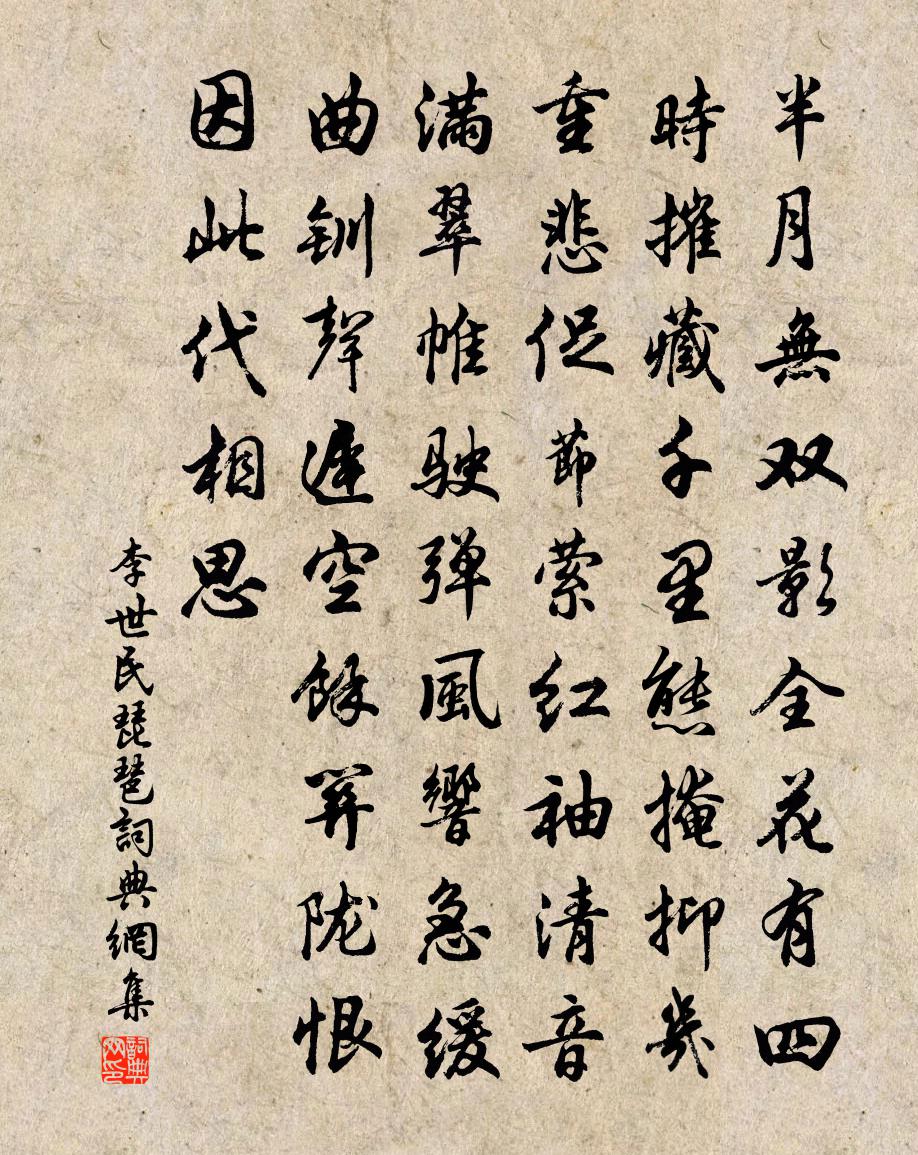 半月無双影全花有四
時摧藏千里態掩抑幾
重悲促節萦红袖清音
滿翠帷駛弹風響急缓
曲钏聲遲空餘關陇恨
因此代相思
李世民琵琶詞典網集
詞典网印